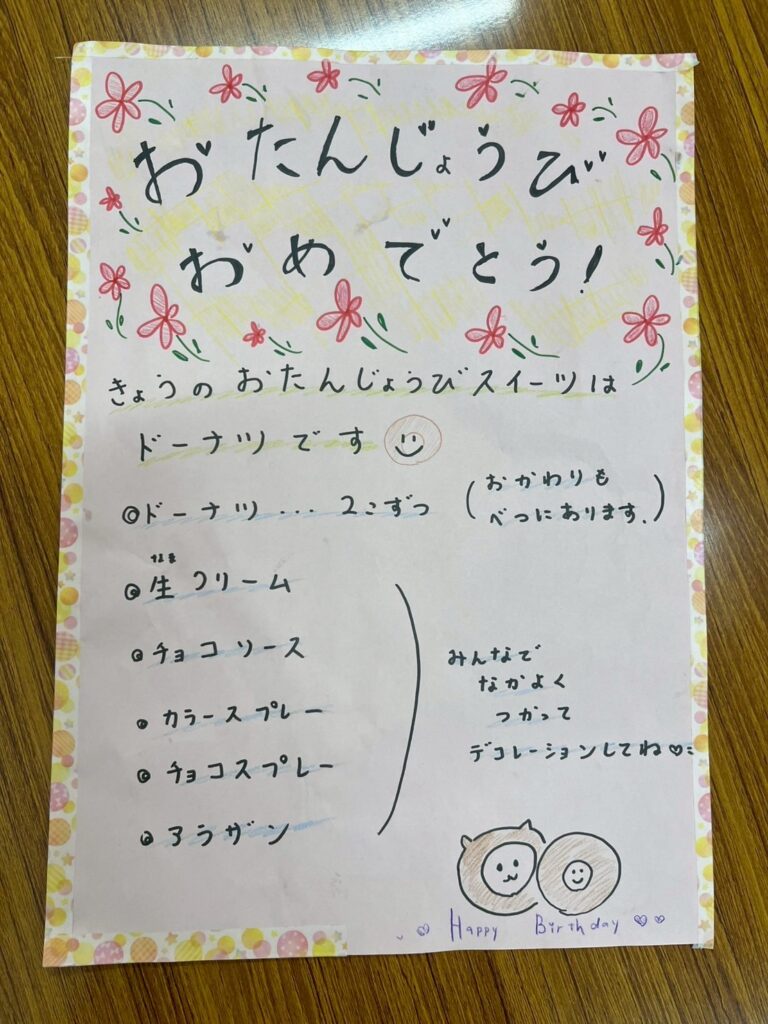 おたんじょうび
おめでとう!
きょうのおたんじょうびスイーツは
ドーナツです
◎ドーナツ... 2こずつ (おかわりも
べつにあります.)
なま
◎生クリーム
◎チョコソース
◎カラースプレー
◎チョコスプレー
◎アラザン
みんなで
なかよく
つかって
デコレーションしてね♡
Happy Birthday ♡♡